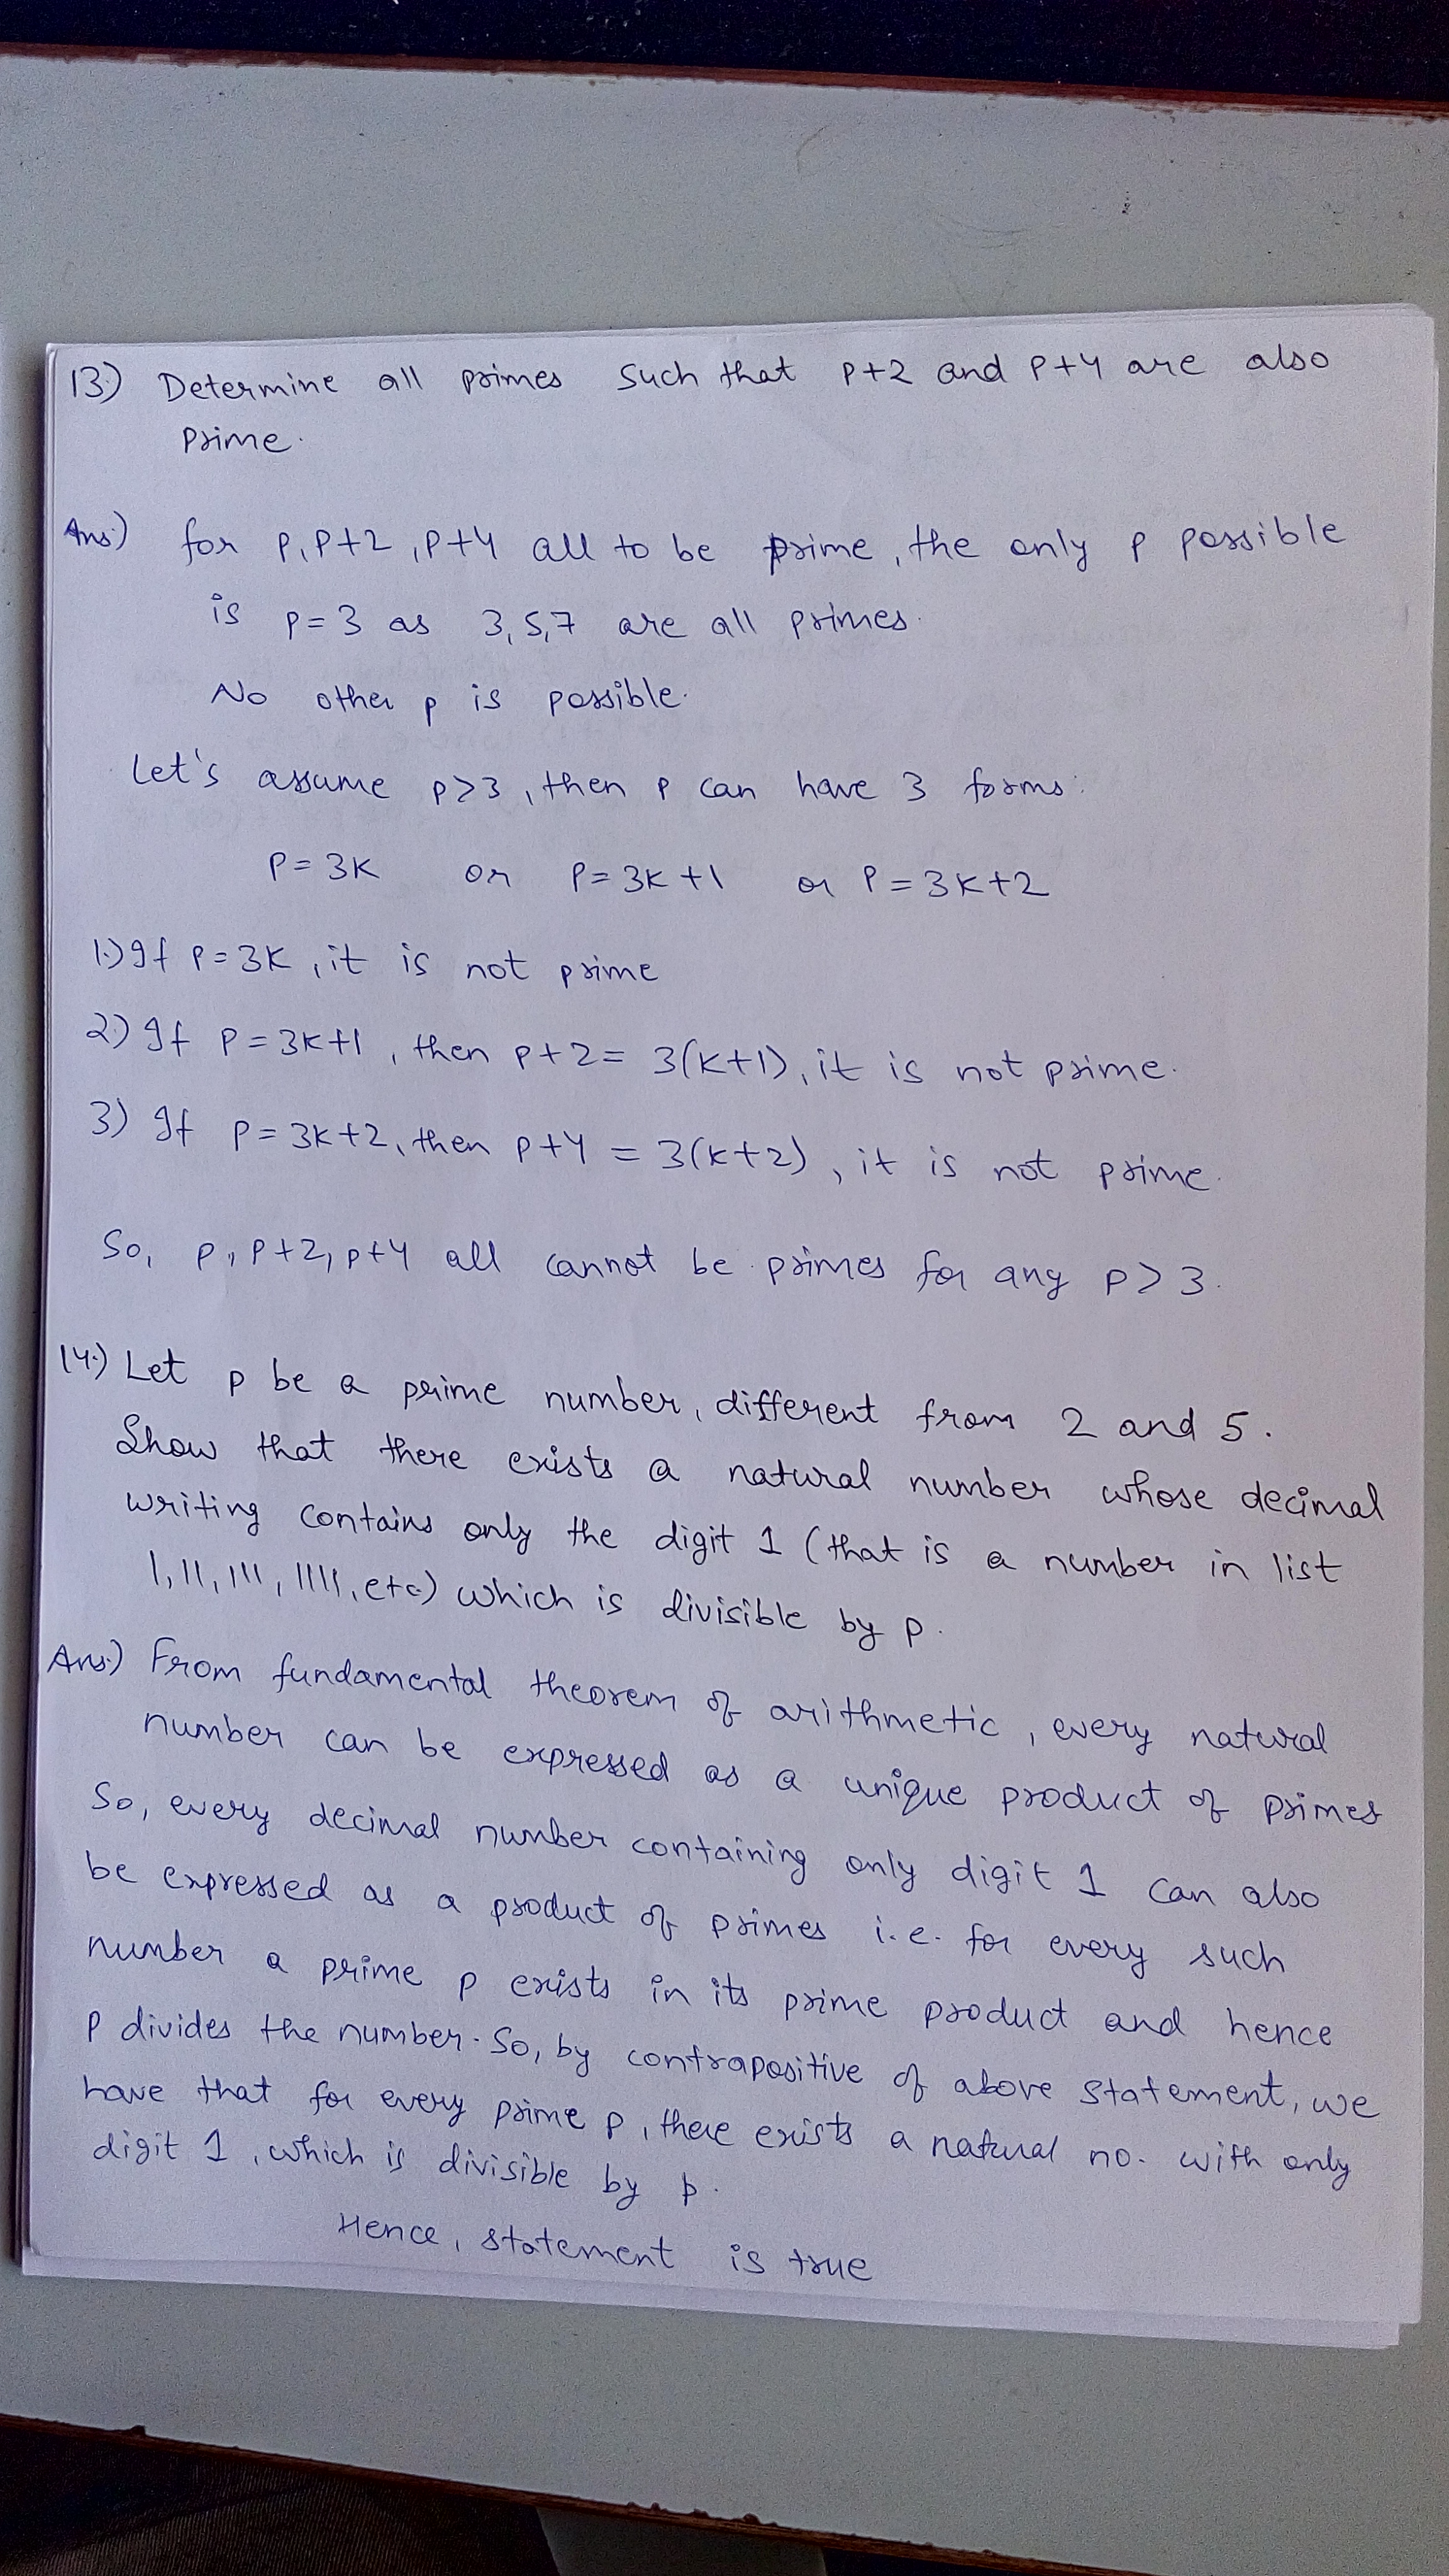 13.) Determine all primes such that p+2 and p+4 are also
prime.
Ans:) for p, p+2, p+4 all to be prime, the only p possible
is p=3 as 3,5,7 are all primes.
No other p is possible.
Let's assume p>3, then p can have 3 forms:
P=3K or P=3K+1 or P=3K+2
1.) If P=3K, it is not prime
2.) If P=3K+1, then p+2= 3(K+1), it is not prime.
3) If P=3K+2, then p+4 = 3(K+2), it is not prime.
So, p, p+2, p+4 all cannot be primes for any p>3.
14.) Let p be a prime number, different from 2 and 5.
Show that there exists a natural number whose decimal
writing contains only the digit 1 (that is a number in list
1, 11, 111, 1111, etc) which is divisible by p.
Ans:) From fundamental theorem of arithmetic, every natural
number can be expressed as a unique product of primes
So, every decimal number containing only digit 1 can also
be expressed as a product of primes i.e. for every such
number a prime p exists in its prime product and hence
P divides the number. So, by contrapositive of above statement, we
have that for every prime p, there exists a natural no. with only
digit 1, which is divisible by p.
Hence, statement is true